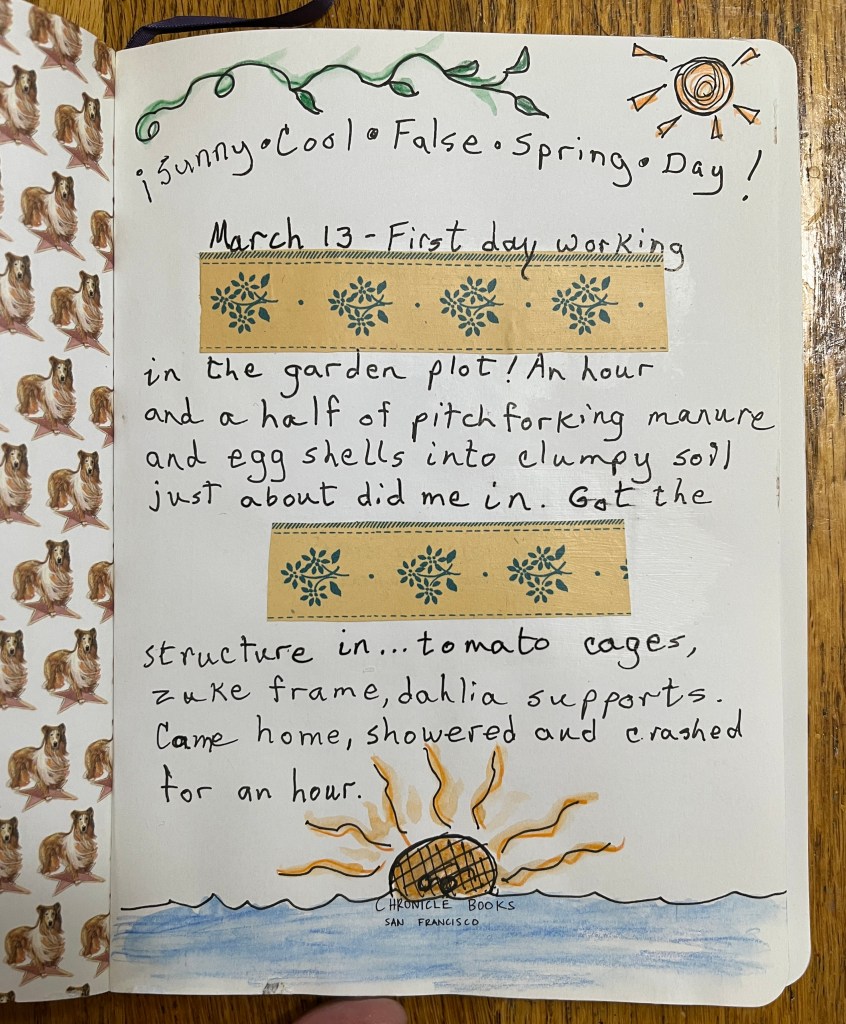 ¡Sunny • Cool • False • Spring • Day!
March 13 - First day working
in the garden plot! An hour
and a half of pitchforking manure
and egg shells into clumpy soil
just about did me in. Got the
structure in... tomato cages,
zuke frame, dahlia supports.
Came home, showered and crashed
for an hour.
CHRONICLE BOOKS
SAN FRANCISCO